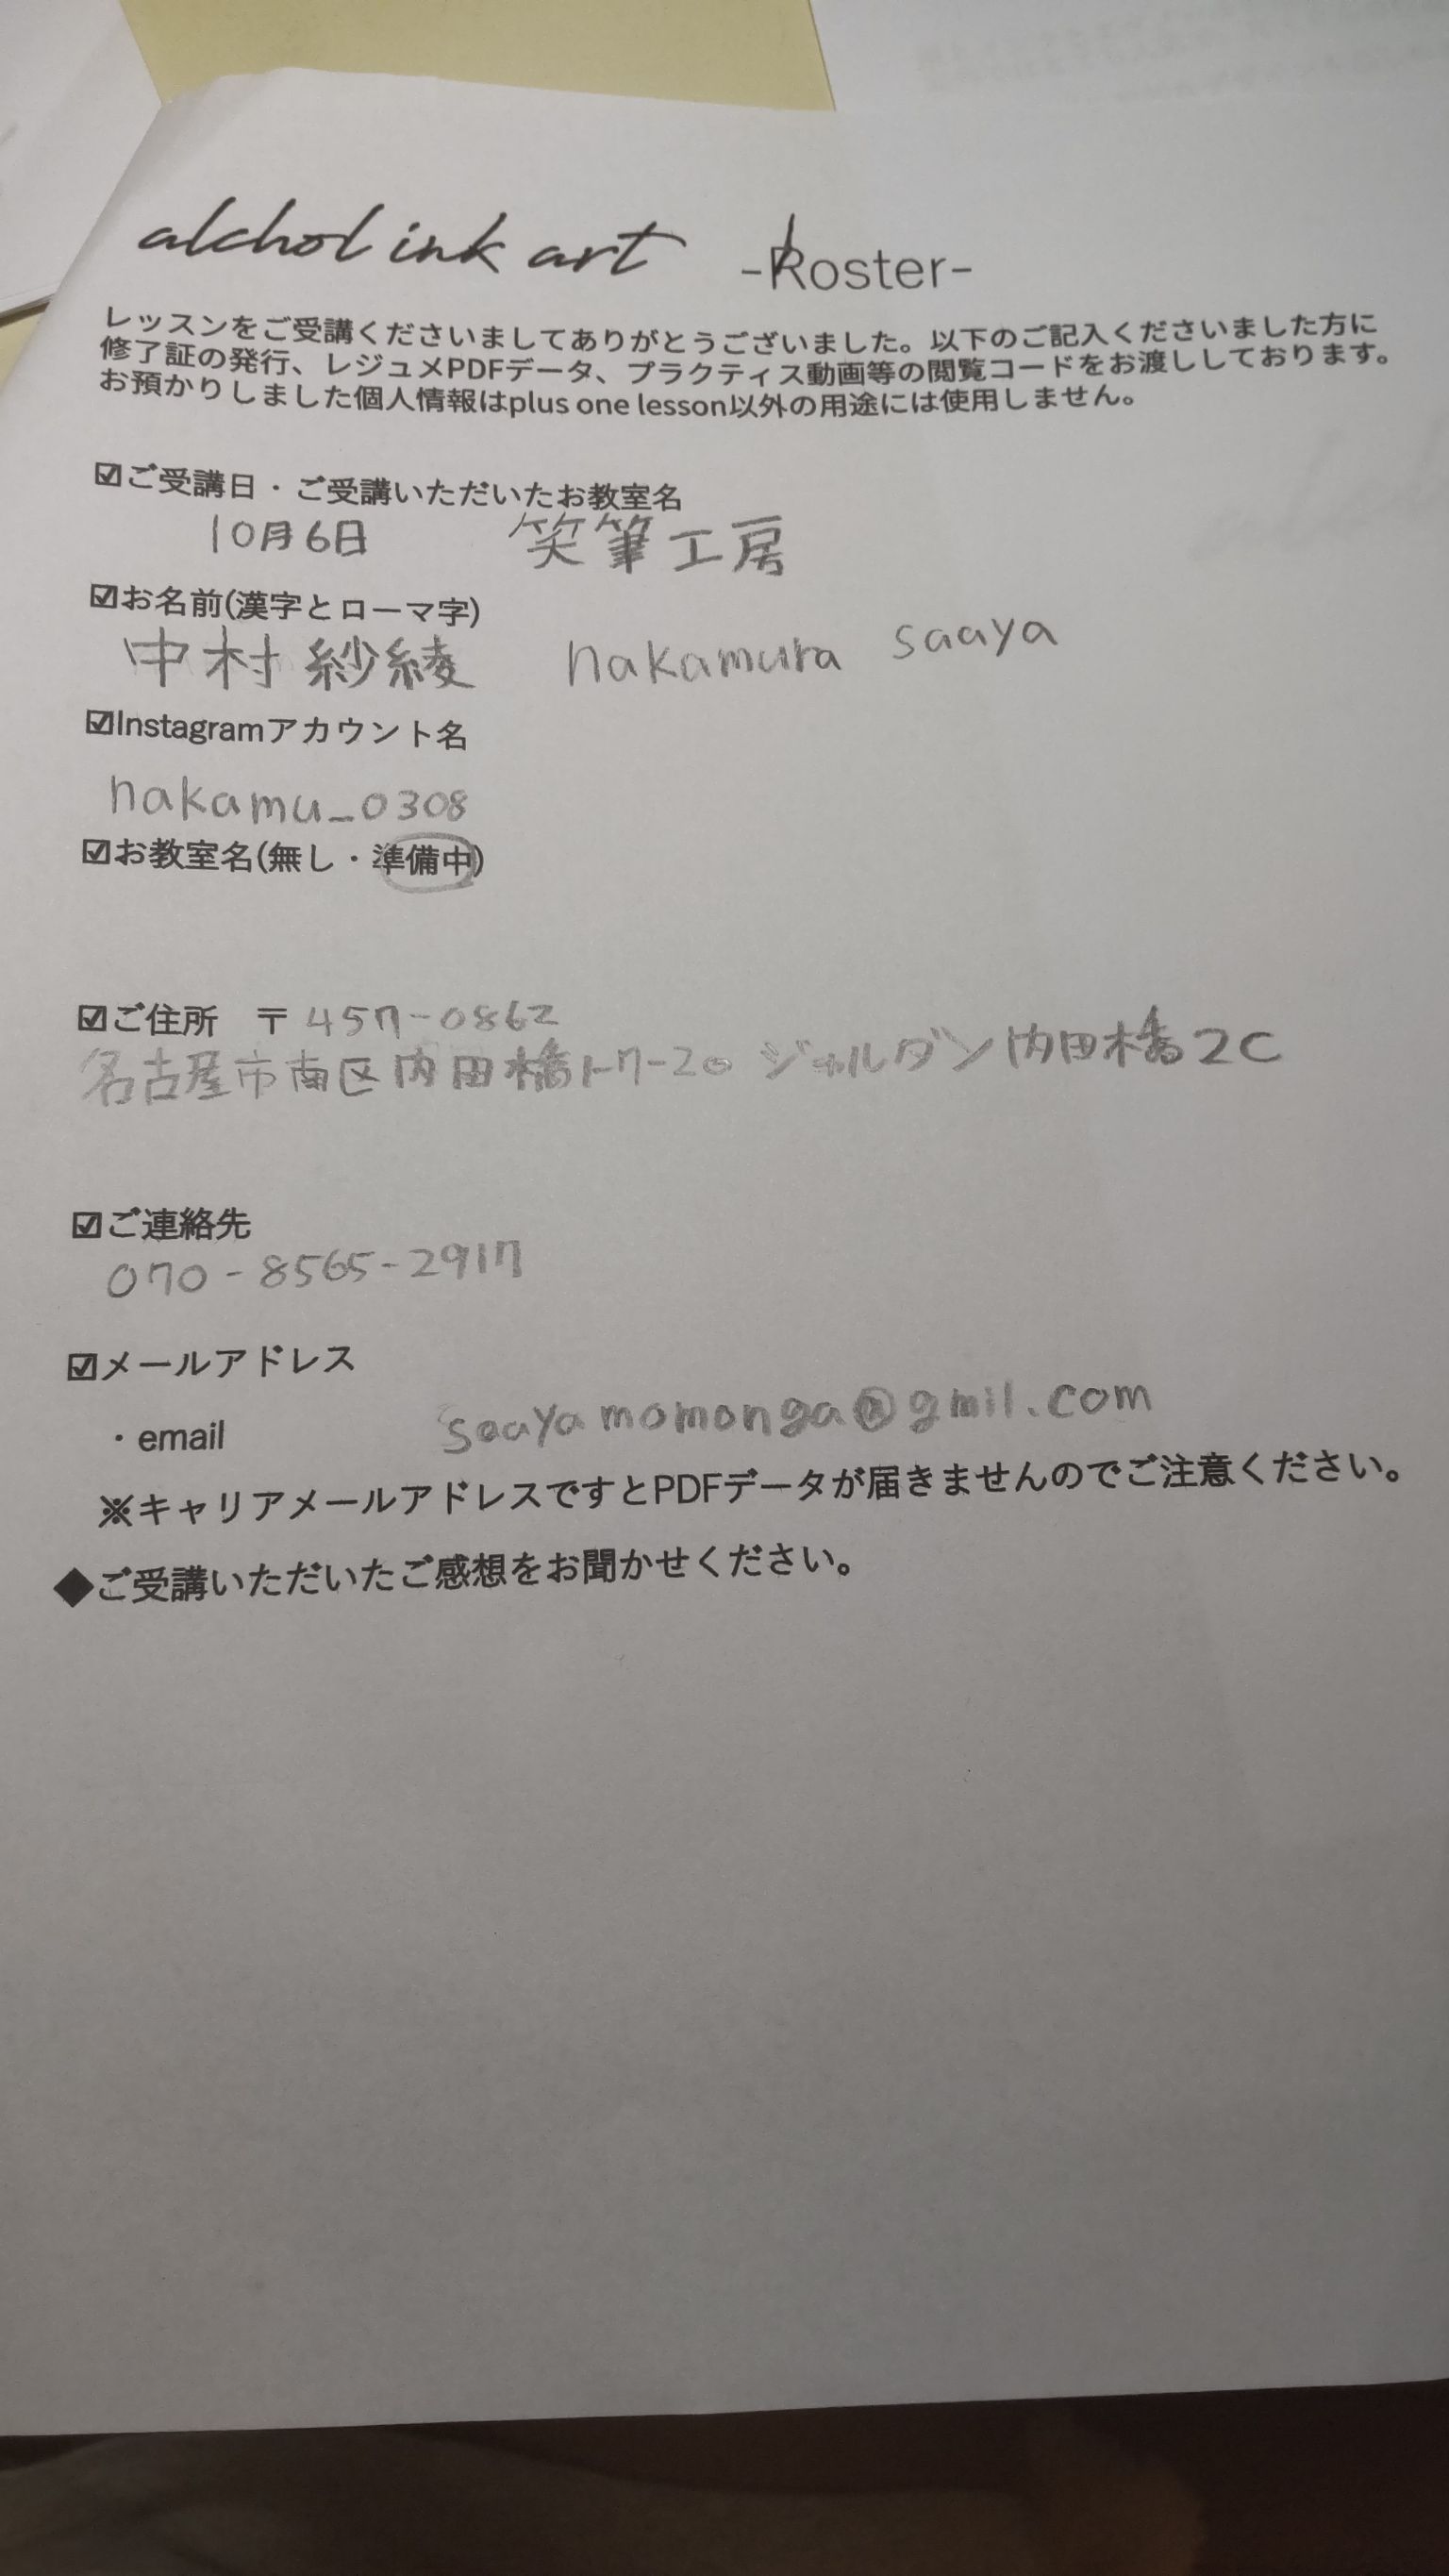 alchol ink art -Roster-
レッスンをご受講くださいましてありがとうございました。以下のご記入くださいました方に
修了証の発行、レジュメPDFデータ、プラクティス動画等の閲覧コードをお渡ししております。
お預かりしました個人情報はplus one lesson以外の用途には使用しません。
☑ご受講日・ご受講いただいたお教室名
10月6日 笑筆工房
☑お名前(漢字とローマ字)
中村 紗綾 nakamura saaya
☑Instagramアカウント名
nakamu_0308
☑お教室名(無し・準備中)
☑ご住所 〒457-0862
名古屋市南区内田橋1-7-20 ジャルダン内田橋2C
☑ご連絡先
070-8565-2917
☑メールアドレス
・email saayamomonga@gmil.com
※キャリアメールアドレスですとPDFデータが届きませんのでご注意ください。
◆ご受講いただいたご感想をお聞かせください。